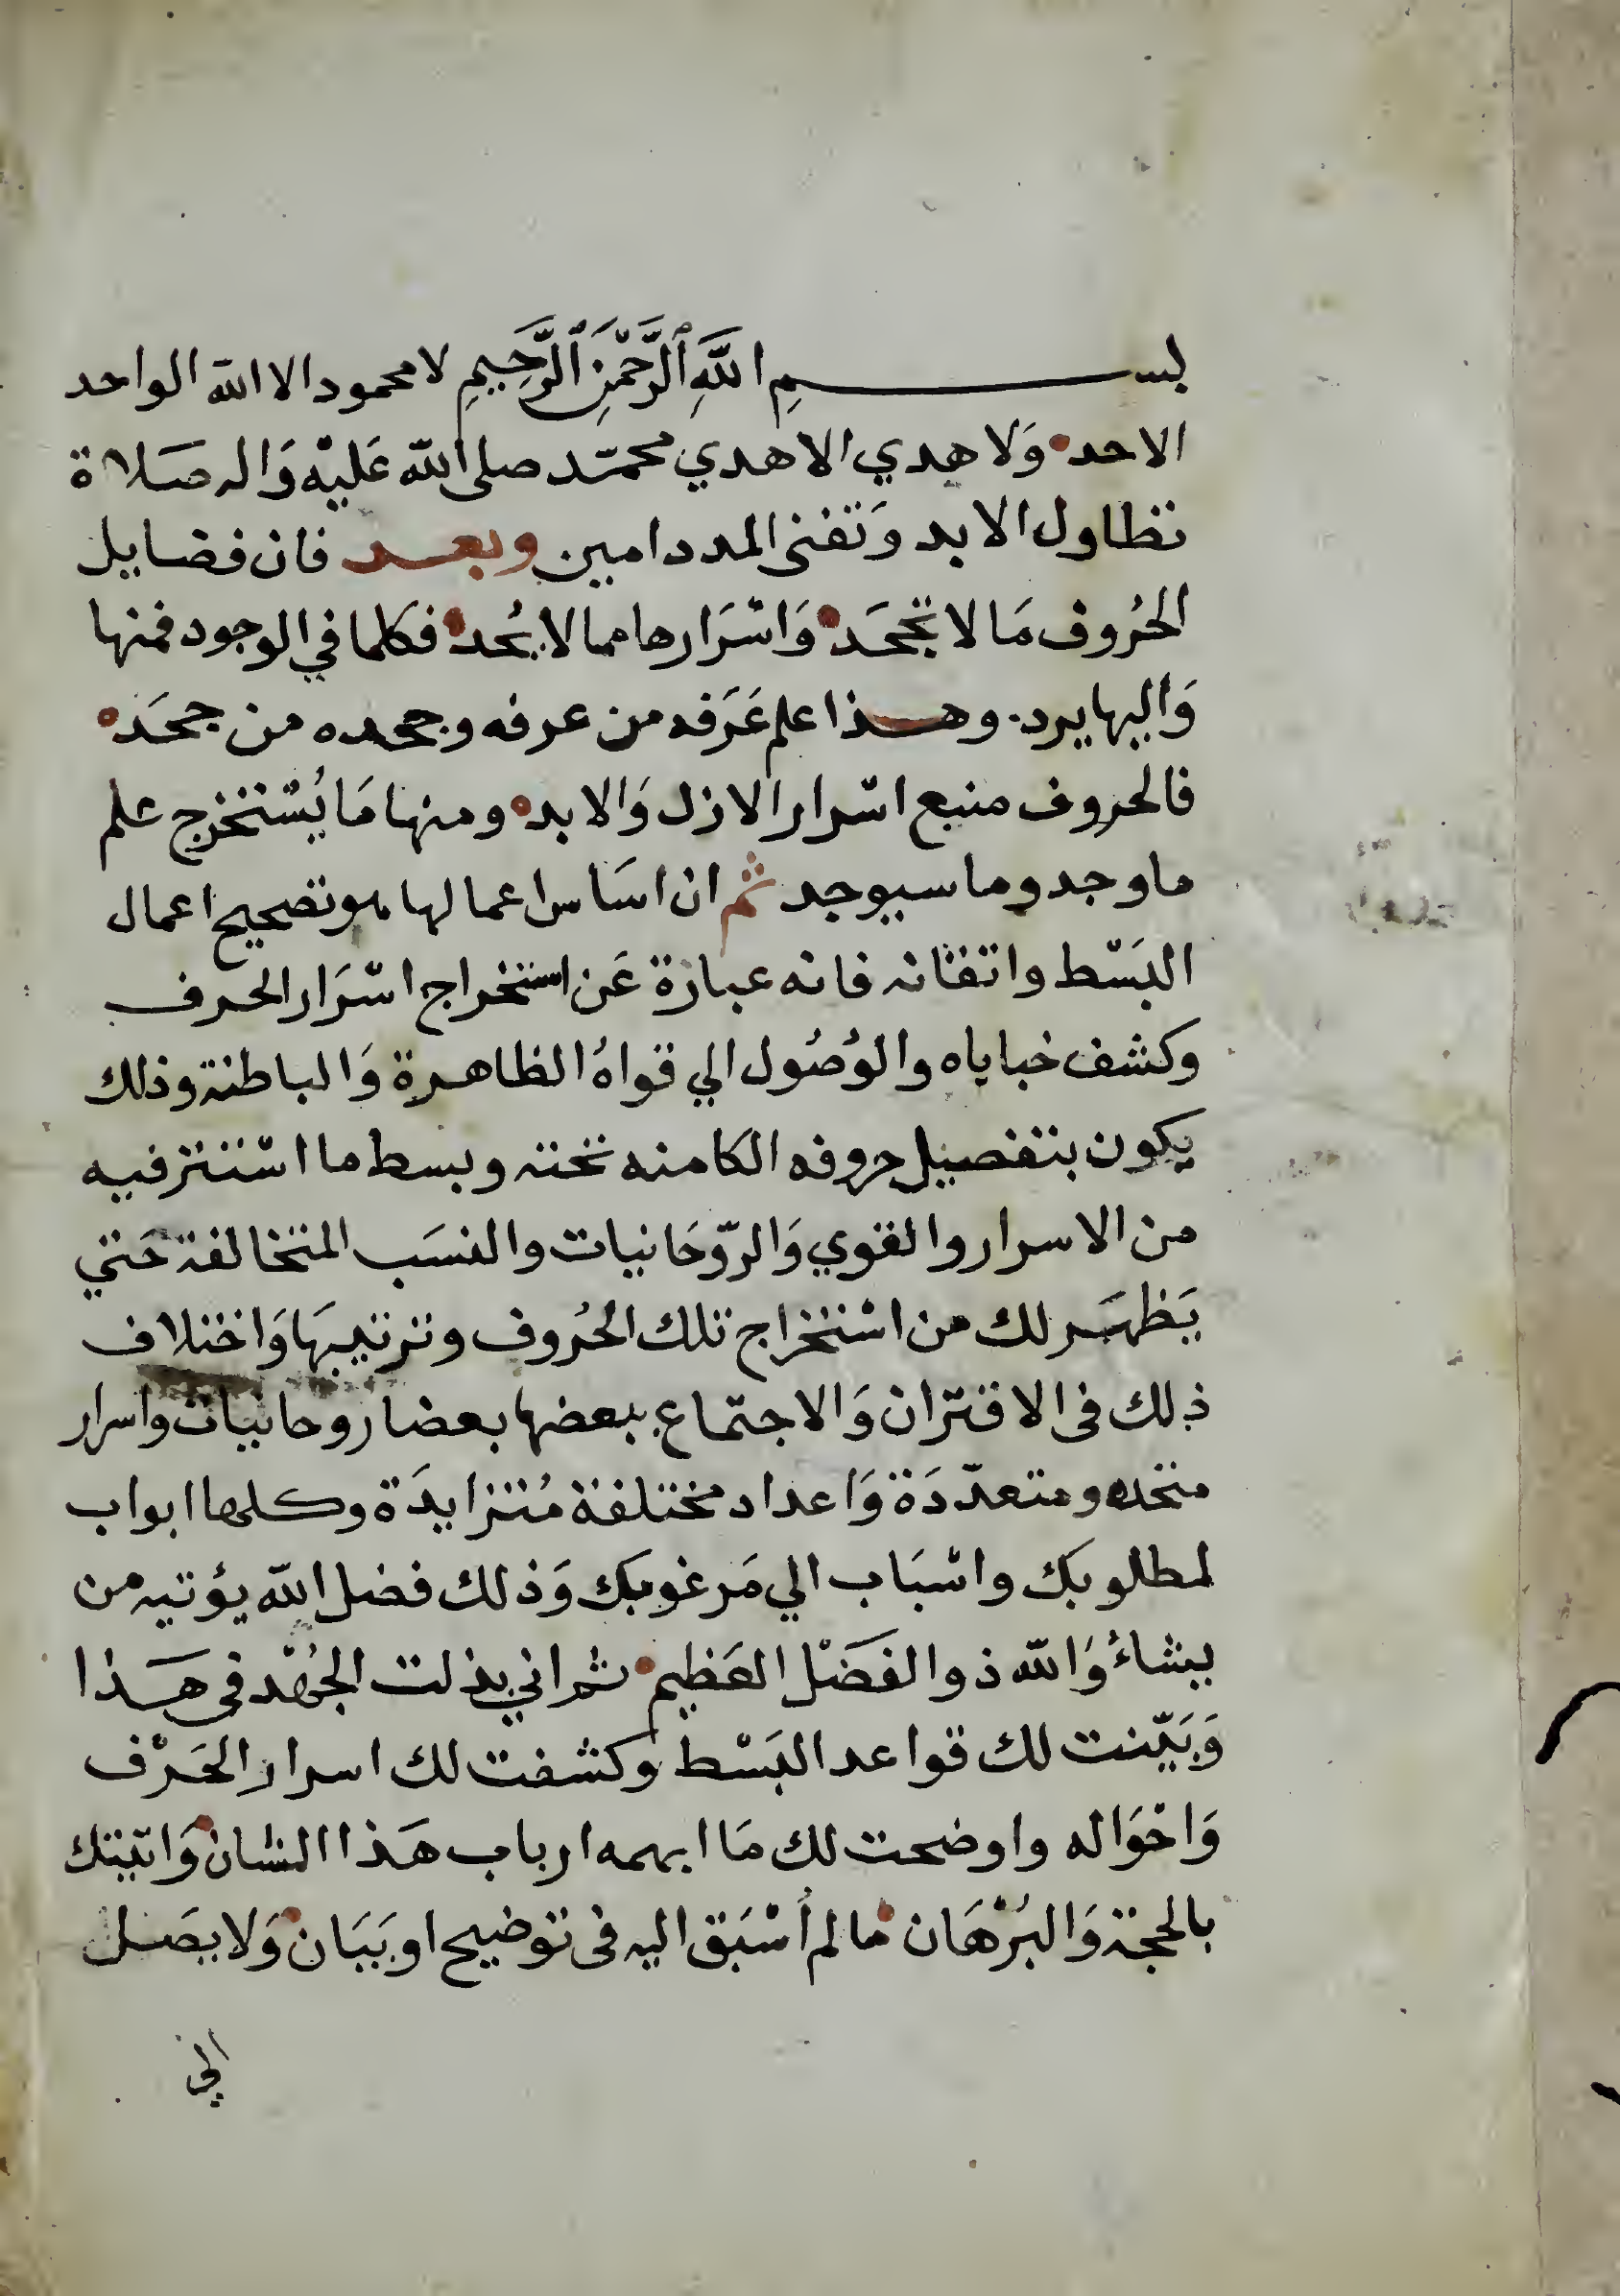 بســـــم اللَّهِ ٱلرَّحْمَٰنِ ٱلرَّحِيمِ لا محمود الا الله الواحد
الاحد وَلا هدي الا هدي محمّد صلى الله عَليْه وَاله صَلاة
تطاول الابد وَتفنى المدد امين وبعد فان فضايل
الحُروف مَا لا تجحَد وَاسْرَارها مما لا يُحد فكلما في الوجود فمنها
وَاليها يرد. وهذا علم عَرَفه من عرفه وجحده من جحَد
فالحروف منبع اسْرار الازل وَالابد ومنها مَا يُسْتخرج علم
ما وجد وما سيوجد ثم ان اسَاس اعمالها هو تصحيح اعمال
البَسْط واتقانه فانه عبارة عَن استخراج اسْرَار الحرف
وكشف خباياه والوُصُول الي قواهُ الظاهرة وَالباطنة وذلك
يكون بتفصيل حروفه الكامنه تحته وبسط ما اسْتتر فيه
من الاسرار والقوي وَالرّوحَانيات والنسَب المتخالفة حَتي
يَظهَر لك من اسْتخراج تلك الحُروف وترتيبهَا وَاختلاف
ذلك فى الاقتران وَالاجتماع ببعضها بعضا روحانيات واسرار
متحده ومتعدّدَة وَاعداد مختلفة مُتزايدَة وكلها ابواب
لمطلوبك واسْبَاب الي مَرغوبك وَذلك فضل الله يؤتيه من
يشاءُ وَالله ذو الفَضْل العَظيم ثم اني بذلت الجُهْد فى هَذا
وَبَيّنت لك قواعد البَسْط وكشفت لك اسرار الحَرْف
وَاحْوَاله واوضحت لك مَا ابهمه ارباب هَذا الشان وَاتيتك
بالحجة وَالبُرْهَان ما لم أسْبَق اليه فى توضيح او بَيَان وَلا يصَل
الي